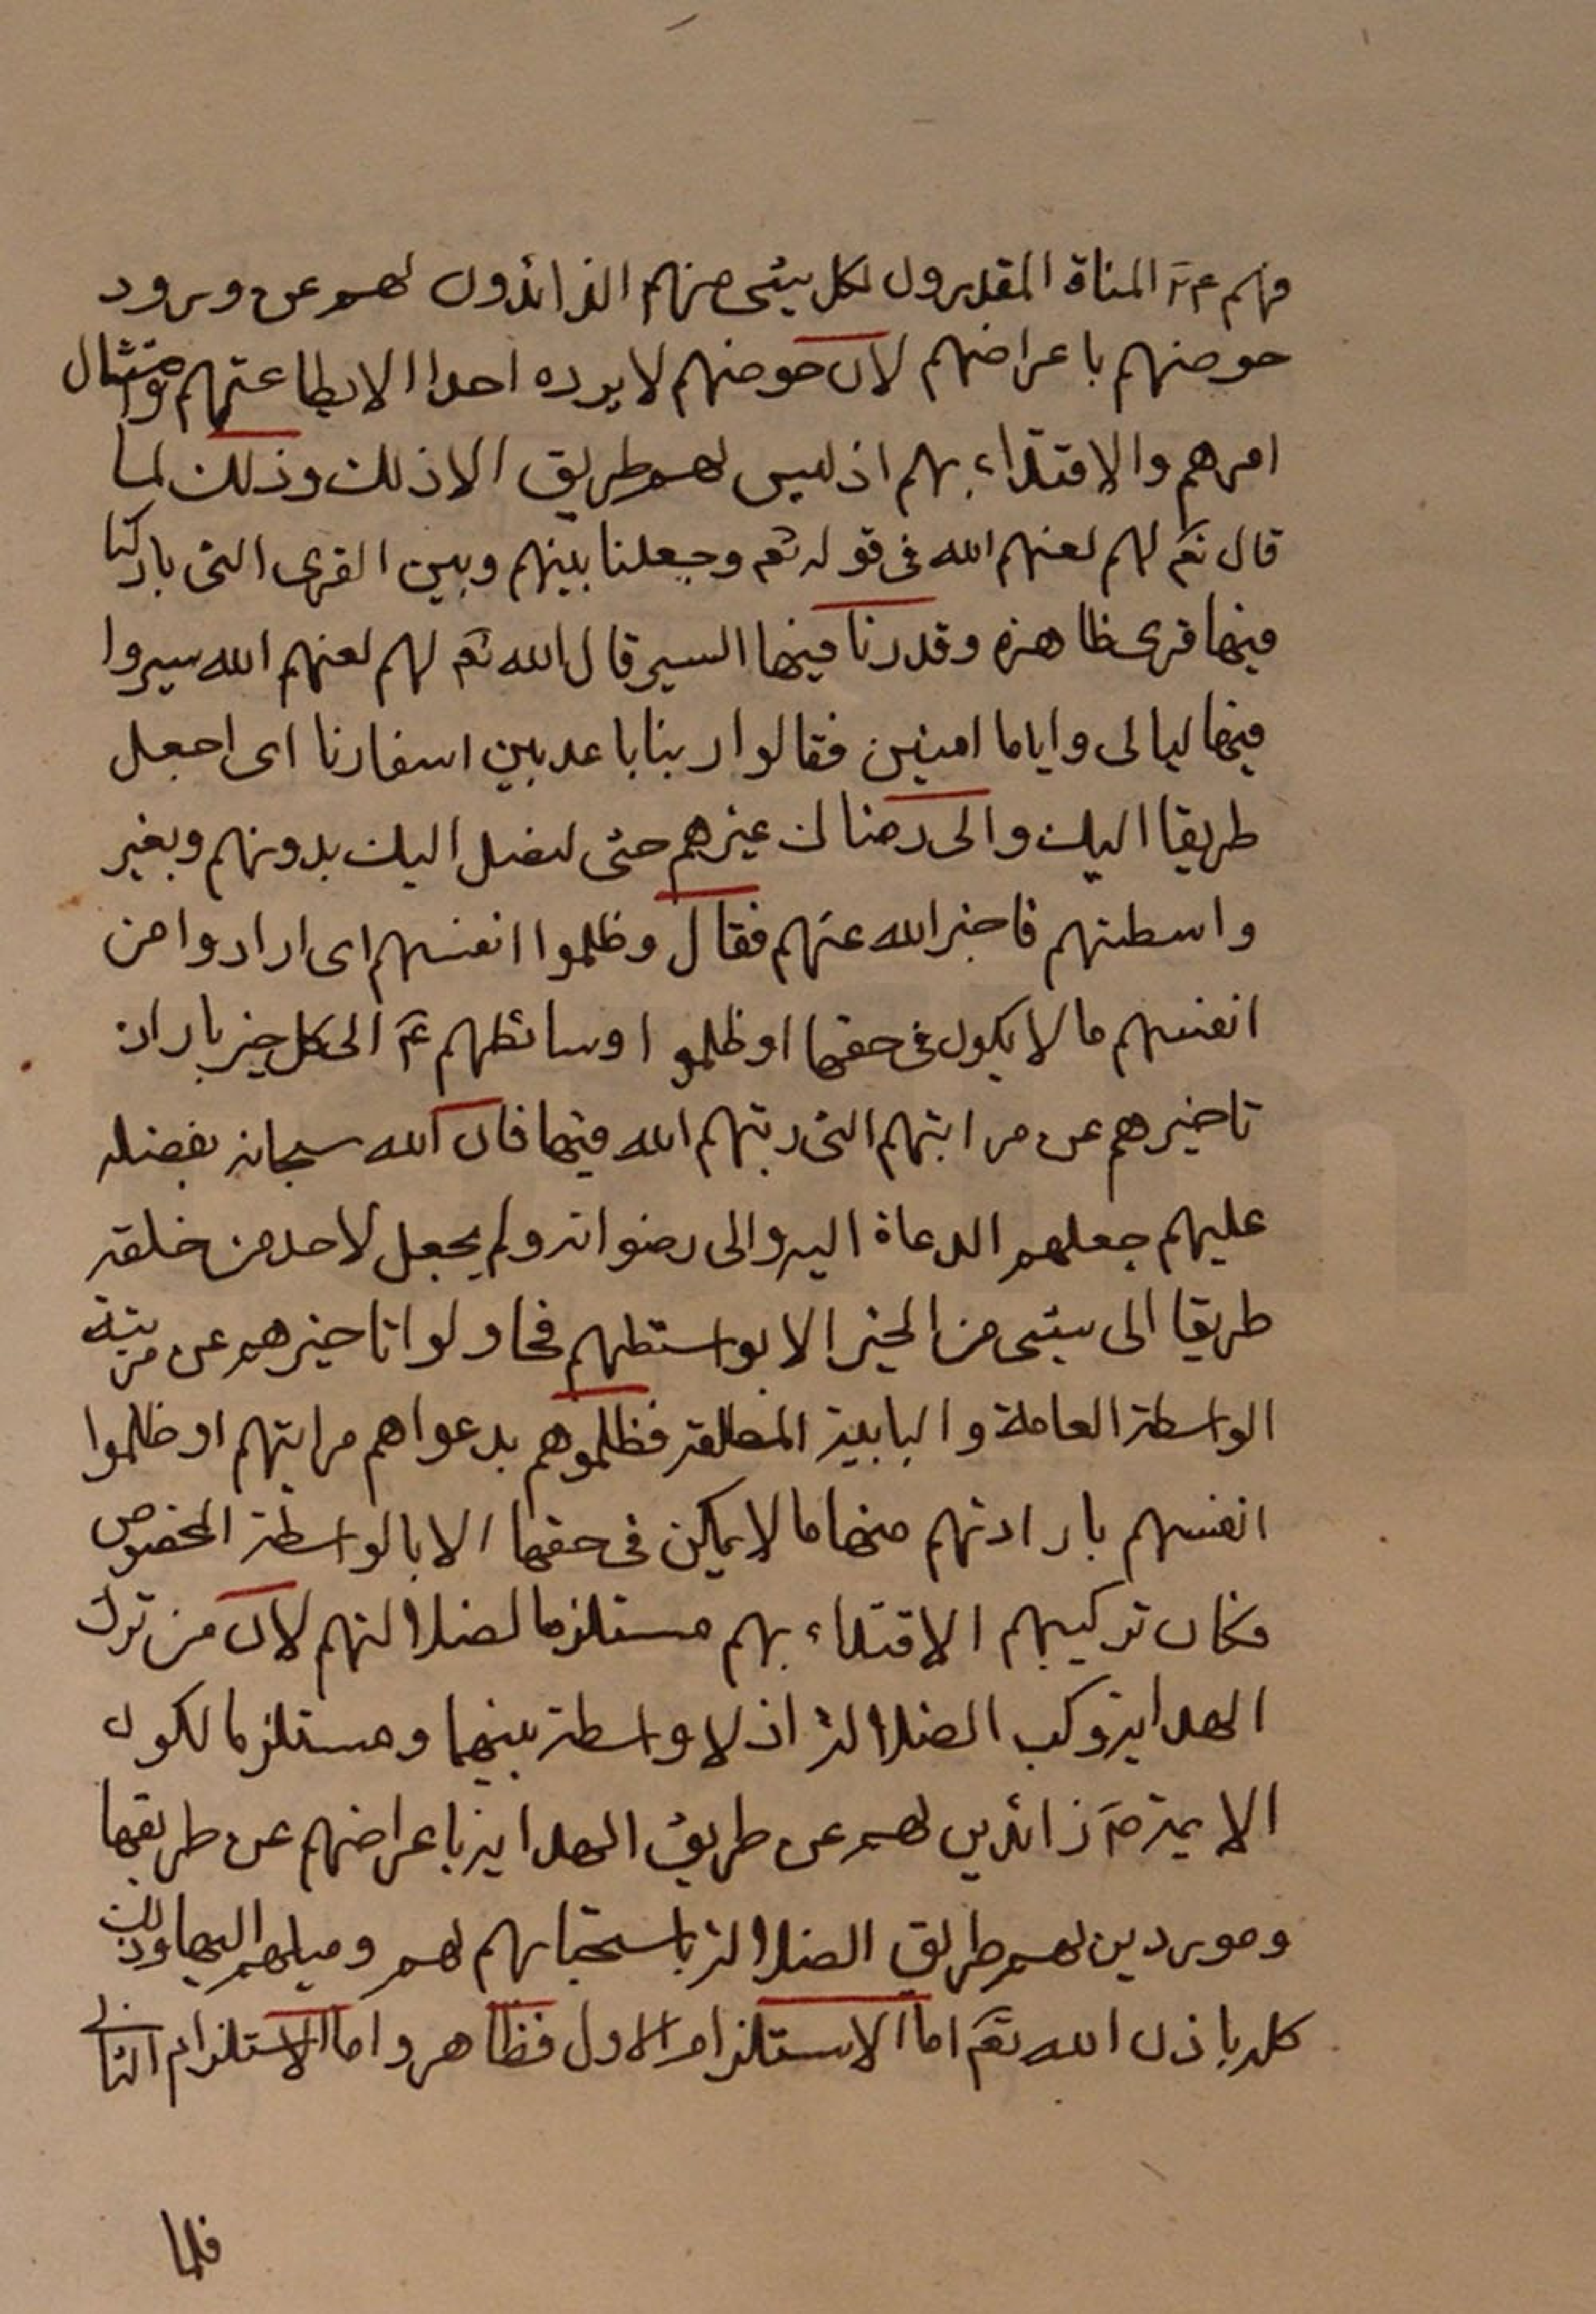 فهم عم المناة المقدرون لكل شئ منهم الذائدون لهم عن ورود
حوضهم باعراضهم لان حوضهم لا يرده احدا الا بطاعتهم وامتثال
امرهم والاقتداء بهم اذ ليس لهم طريق الا ذلك وذلك لما
قال تع لهم لعنهم الله فى قوله تع وجعلنا بينهم وبين القرى التى باركنا
فيها قرى ظاهرة وقدرنا فيها السير قال الله تع لهم لعنهم الله سيروا
فيها ليالى واياما امنين فقالوا ربنا باعد بين اسفارنا اى اجعل
طريقا اليك والى رضاك غيرهم حتى لنصل اليك بدونهم وبغير
واسطتهم فاخبر الله عنهم فقال وظلموا انفسهم اى ارادوا من
انفسهم ما لا يكون فى حقها او ظلموا وسائطهم عم الى كل خير بارادة
تاخيرهم عن مراتبهم التى رتبهم الله فيها فان الله سبحانه بفضله
عليهم جعلهم الدعاة اليه والى رضوانه ولم يجعل لاحد من خلقه
طريقا الى شئ من الخير الا بواستطهم فحاولوا تاخيرهم عن مرتبة
الواسطة العاملة والبابية المطلقة فظلموهم بدعواهم مراتبهم او ظلموا
انفسهم بارادتهم منها ما لا يمكن فى حقها الا بالواسطة المخصوص
فكان تركيبهم الاقتداء بهم مستلزما لضلالتهم لان من ترك
الهداية ركب الضلالة اذ لا واسطة بينهما ومستلزما لكون
الا يمة عم ذائدين لهم عن طريق الهداية باعراضهم عن طريقها
وموردين لهم طريق الضلالة باستحبابهم لهم وميلهم اليها وذلك
كله باذن الله تع اما الاستلزام الاول فظاهر واما الاستلزام الثانى
فلما